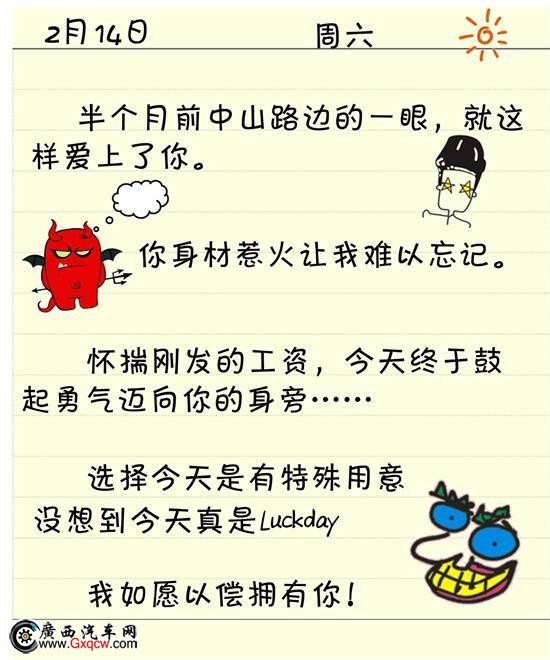 2月14日 周六
半个月前中山路边的一眼，就这
样爱上了你。
你身材惹火让我难以忘记。
怀揣刚发的工资，今天终于鼓
起勇气迈向你的身旁……
选择今天是有特殊用意
没想到今天真是Luckday
我如愿以偿拥有你！
廣西汽车网
www.Gxqcw.com